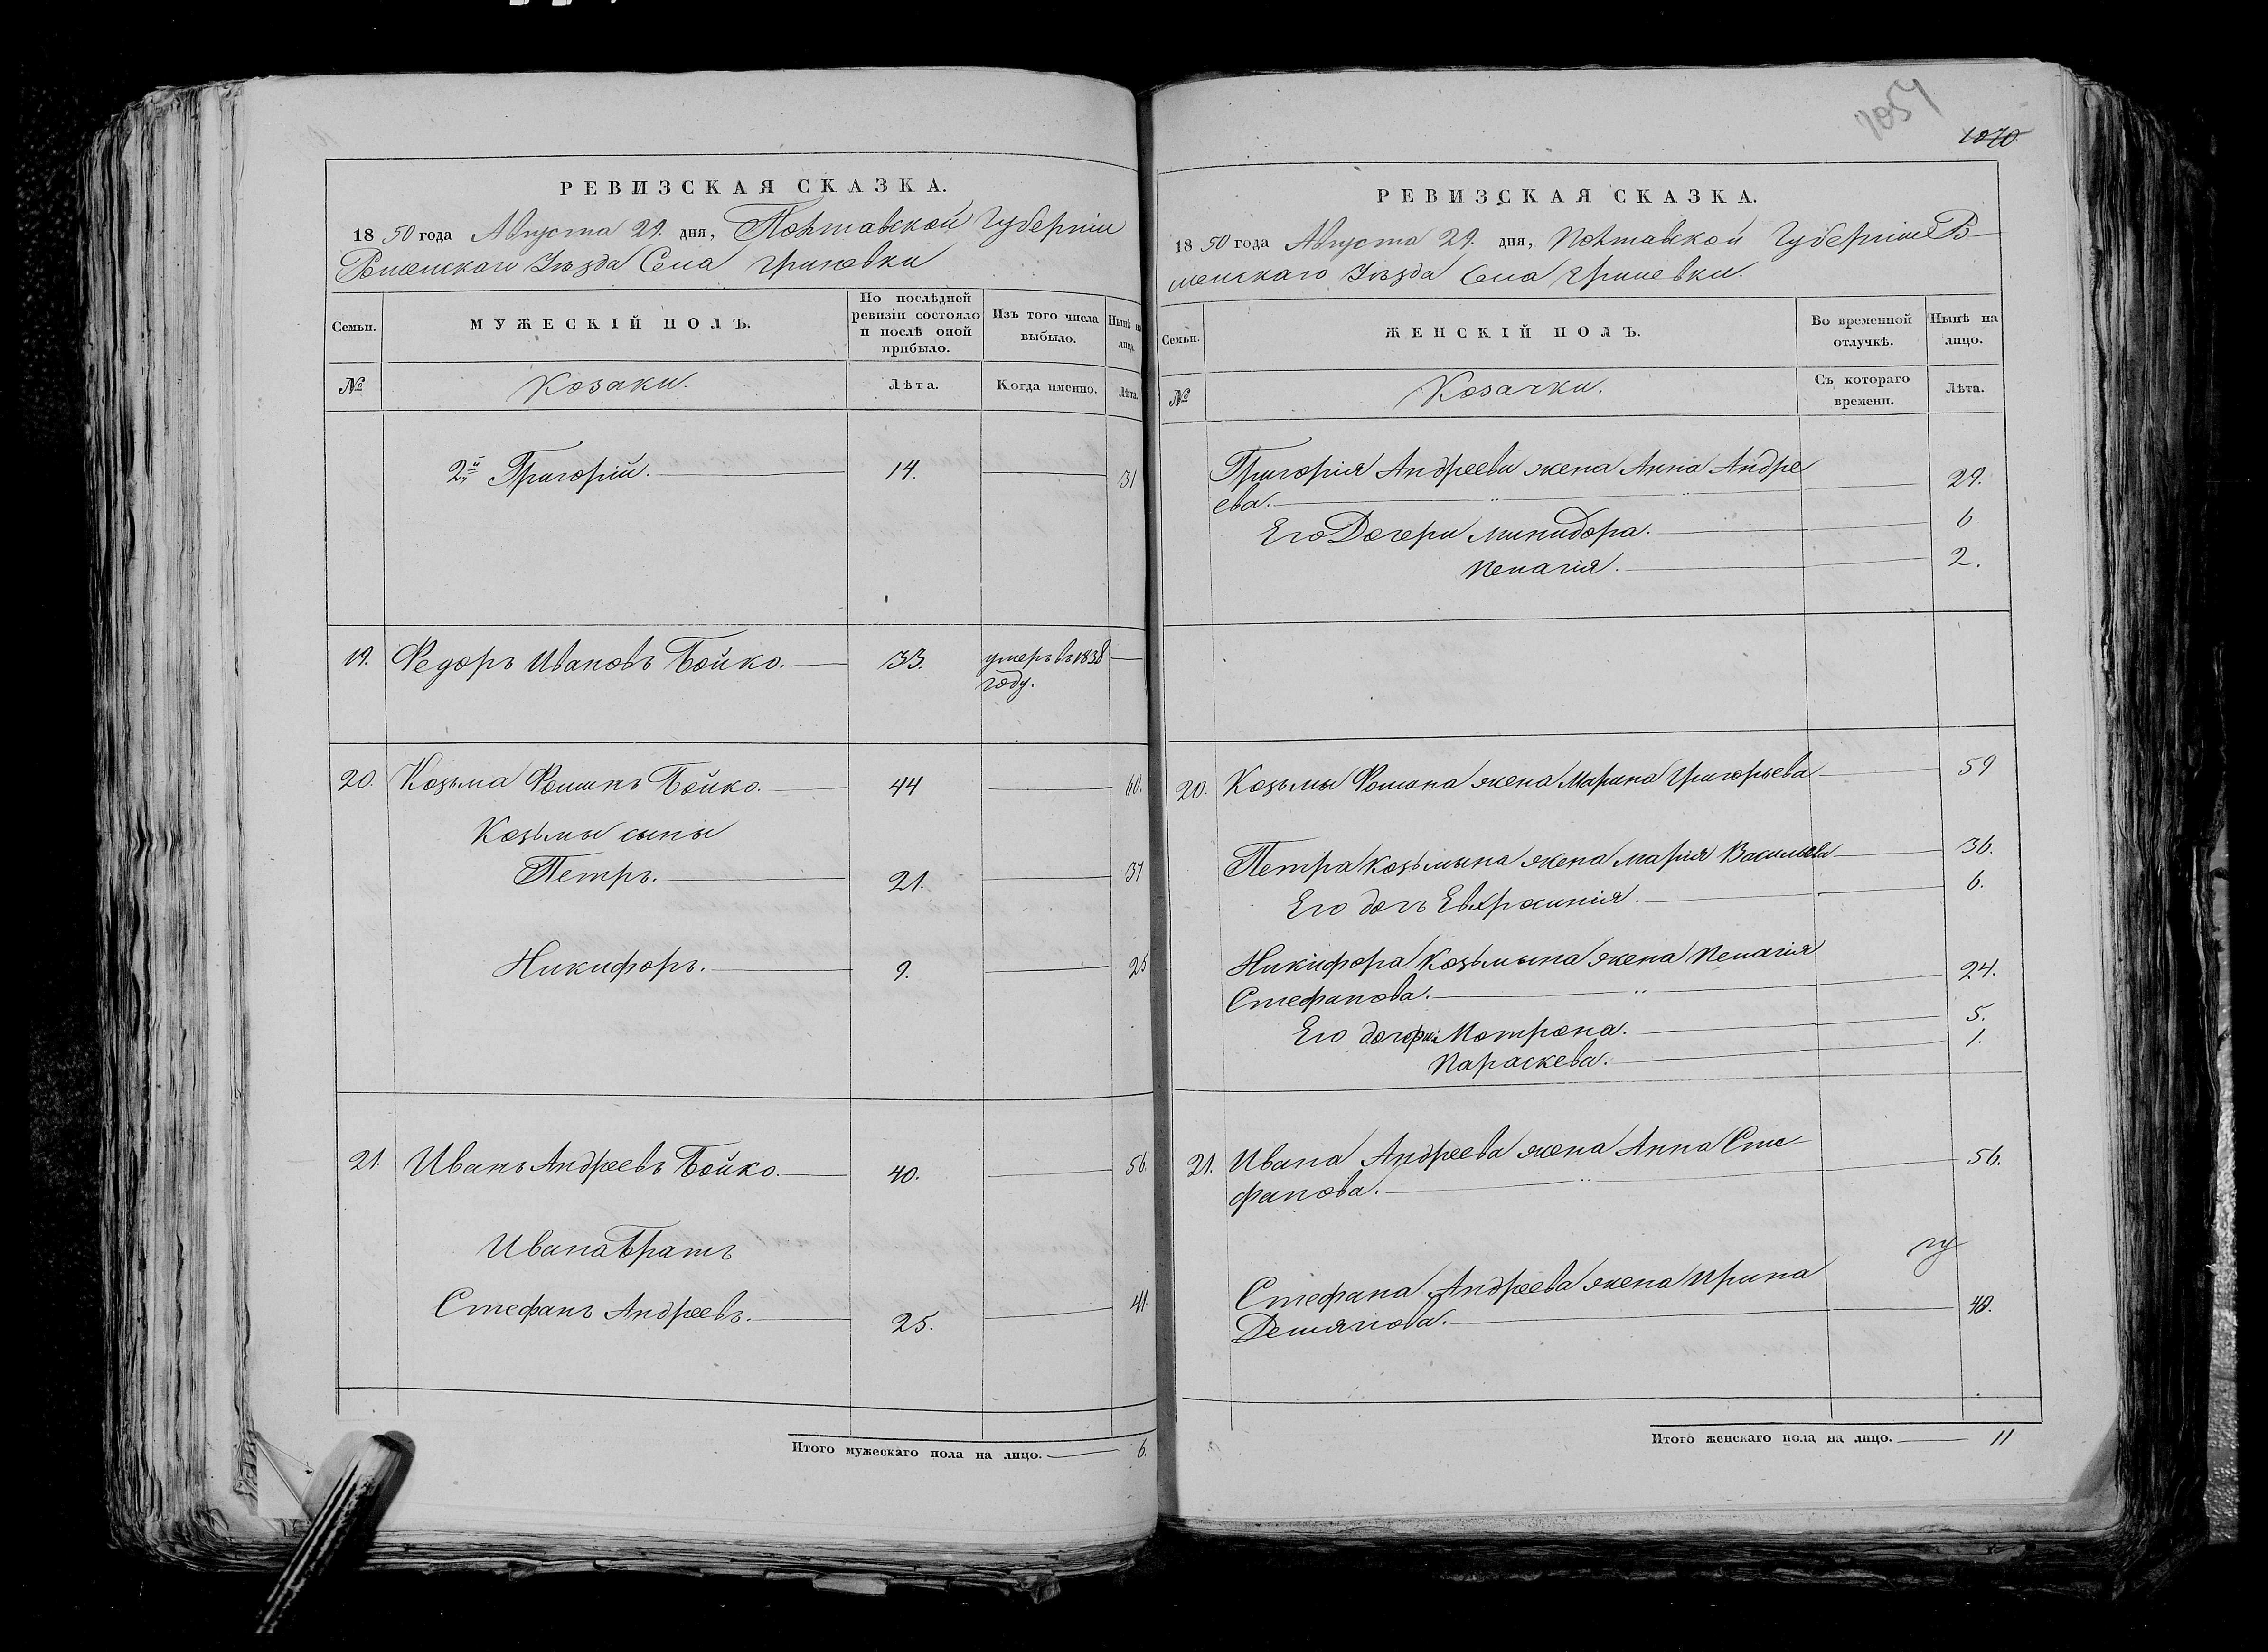 РЕВИЗСКАЯ СКАЗКА.
1850 года Августа 29. дня, Полтавской Губерніи
Роменского Уѣзда Села Гриневки
Семьи. МУЖЕСКІЙ ПОЛЪ. По послѣдней ревизіи состояло и послѣ оной прибыло. Изъ того числа выбыло. Нынѣ на лицо.
№ Козаки. Лѣта. Когда именно. Лѣта.
2й Григорій. 14. 31
19. Федоръ Ивановъ Бойко. 33. умеръ въ 1838
году.
20. Козьма Фоминъ Бойко. 44 60.
Козьмы сыны
Петръ. 21. 37
Никифоръ. 9. 25
21. Иванъ Андреевъ Бойко. 40. 56.
Ивана братъ
Стефанъ Андреевъ. 25. 41.
Итого мужескаго пола на лицо. 6.
1054
1070
РЕВИЗСКАЯ СКАЗКА.
1850 года Августа 29. дня, Полтавской Губерніи Ро
менскаго Уѣзда Села Гриневки.
Семьи. ЖЕНСКІЙ ПОЛЪ. Во временной отлучкѣ. Нынѣ на лицо.
№ Козачки. Съ котораго времени. Лѣта.
Григорія Андреева жена Анна Андре
ева. 29.
Его Дочери Минидора. 6
Пелагія. 2.
20. Козьмы Фомина жена Марина Григорьева 59
Петра Козьмина жена Марія Василева 36.
Его дочь Евфросинія. 6.
Никифора Козьмина жена Пелагія
Стефанова. 24.
Его дочери Мотрона. 5.
Параскева. 1.
21. Ивана Андреева жена Анна Сте
фанова. 56.
Стефана Андреева жена Ирина
Демянова. 40.
Итого женскаго пола на лицо. 11